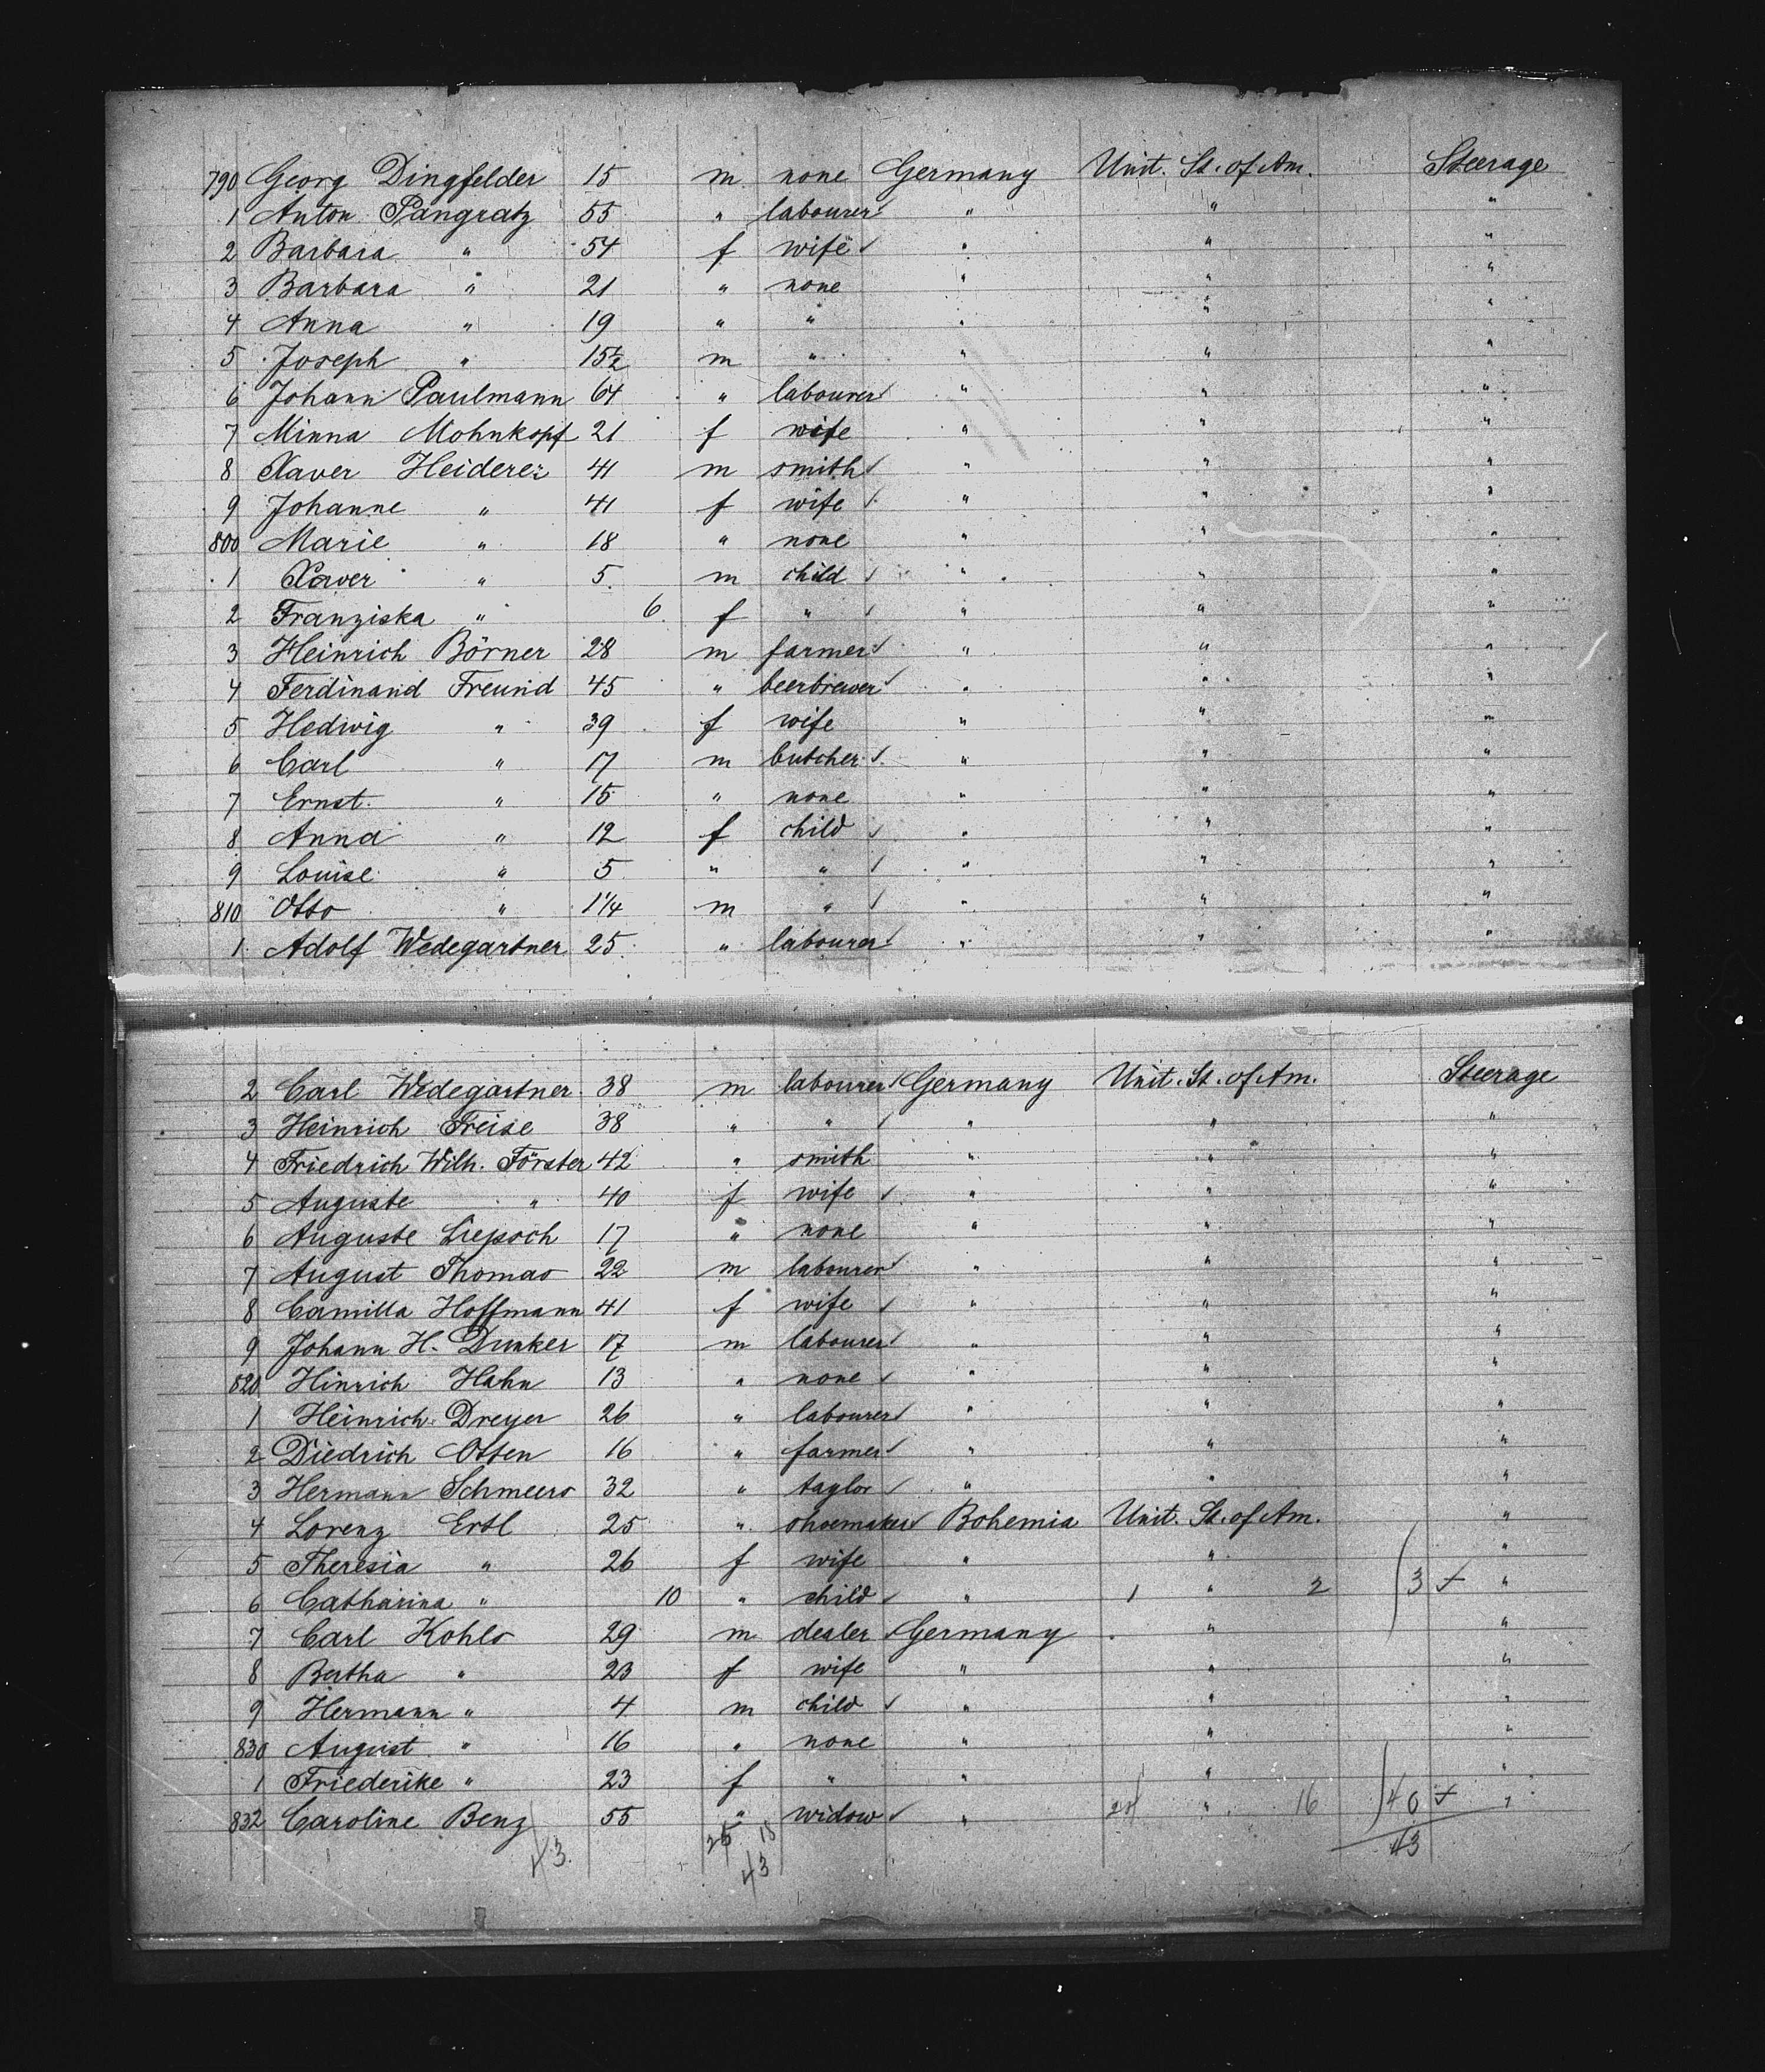 790 Georg Dingfelder 15 m none Germany Unit. St. of Am. Steerage
1 Anton Pangratz 55 " labourer " " "
2 Barbara " 54 f wife " " "
3 Barbara " 21 " none " " "
4 Anna " 19 " " " " "
5 Joseph " 15½ m " " " "
6 Johann Paulmann 64 " labourer " " "
7 Minna Mohnkopf 21 f wife " " "
8 Xaver Heiderer 41 m smith " " "
9 Johanne " 41 f wife " " "
800 Marie " 18 " none " " "
1 Xaver " 5 m child " " "
2 Franziska " 6 f " " " "
3 Heinrich Börner 28 m farmer " " "
4 Ferdinand Freund 45 " beerbrewer " " "
5 Hedwig " 39 f wife " " "
6 Carl " 17 m butcher " " "
7 Ernst " 15 " none " " "
8 Anna " 12 f child " " "
9 Louise " 5 " " " " "
810 Otto " 1¼ m " " " "
1 Adolf Wedegartner 25 " labourer " " "
2 Carl Wedegartner 38 m labourer Germany Unit. St. of Am. Steerage
3 Heinrich Freise 38 " " " " "
4 Friedrich Wilh. Förster 42 " smith " " "
5 Auguste " 40 f wife " " "
6 Auguste Liepsch 17 " none " " "
7 August Thomas 22 m labourer " " "
8 Camilla Hoffmann 41 f wife " " "
9 Johann H. Dunker 17 m labourer " " "
820 Hinrich Hahn 13 " none " " "
1 Heinrich Dreyer 26 " labourer " " "
2 Diedrich Otten 16 " farmer " " "
3 Hermann Schmeers 32 " taylor " " "
4 Lorenz Ertl 25 " shoemaker Bohemia Unit. St. of Am. "
5 Theresia " 26 f wife " " "
6 Catharina " 10 " child " 1 " 2 3 + "
7 Carl Kohls 29 m dealer Germany " "
8 Bertha " 23 f wife " " "
9 Hermann " 4 m child " " "
830 August " 16 " none " " "
1 Friederike " 23 f " " " "
832 Caroline Benz 55 " widow " " 16 40 + "
43 25 18 43
43